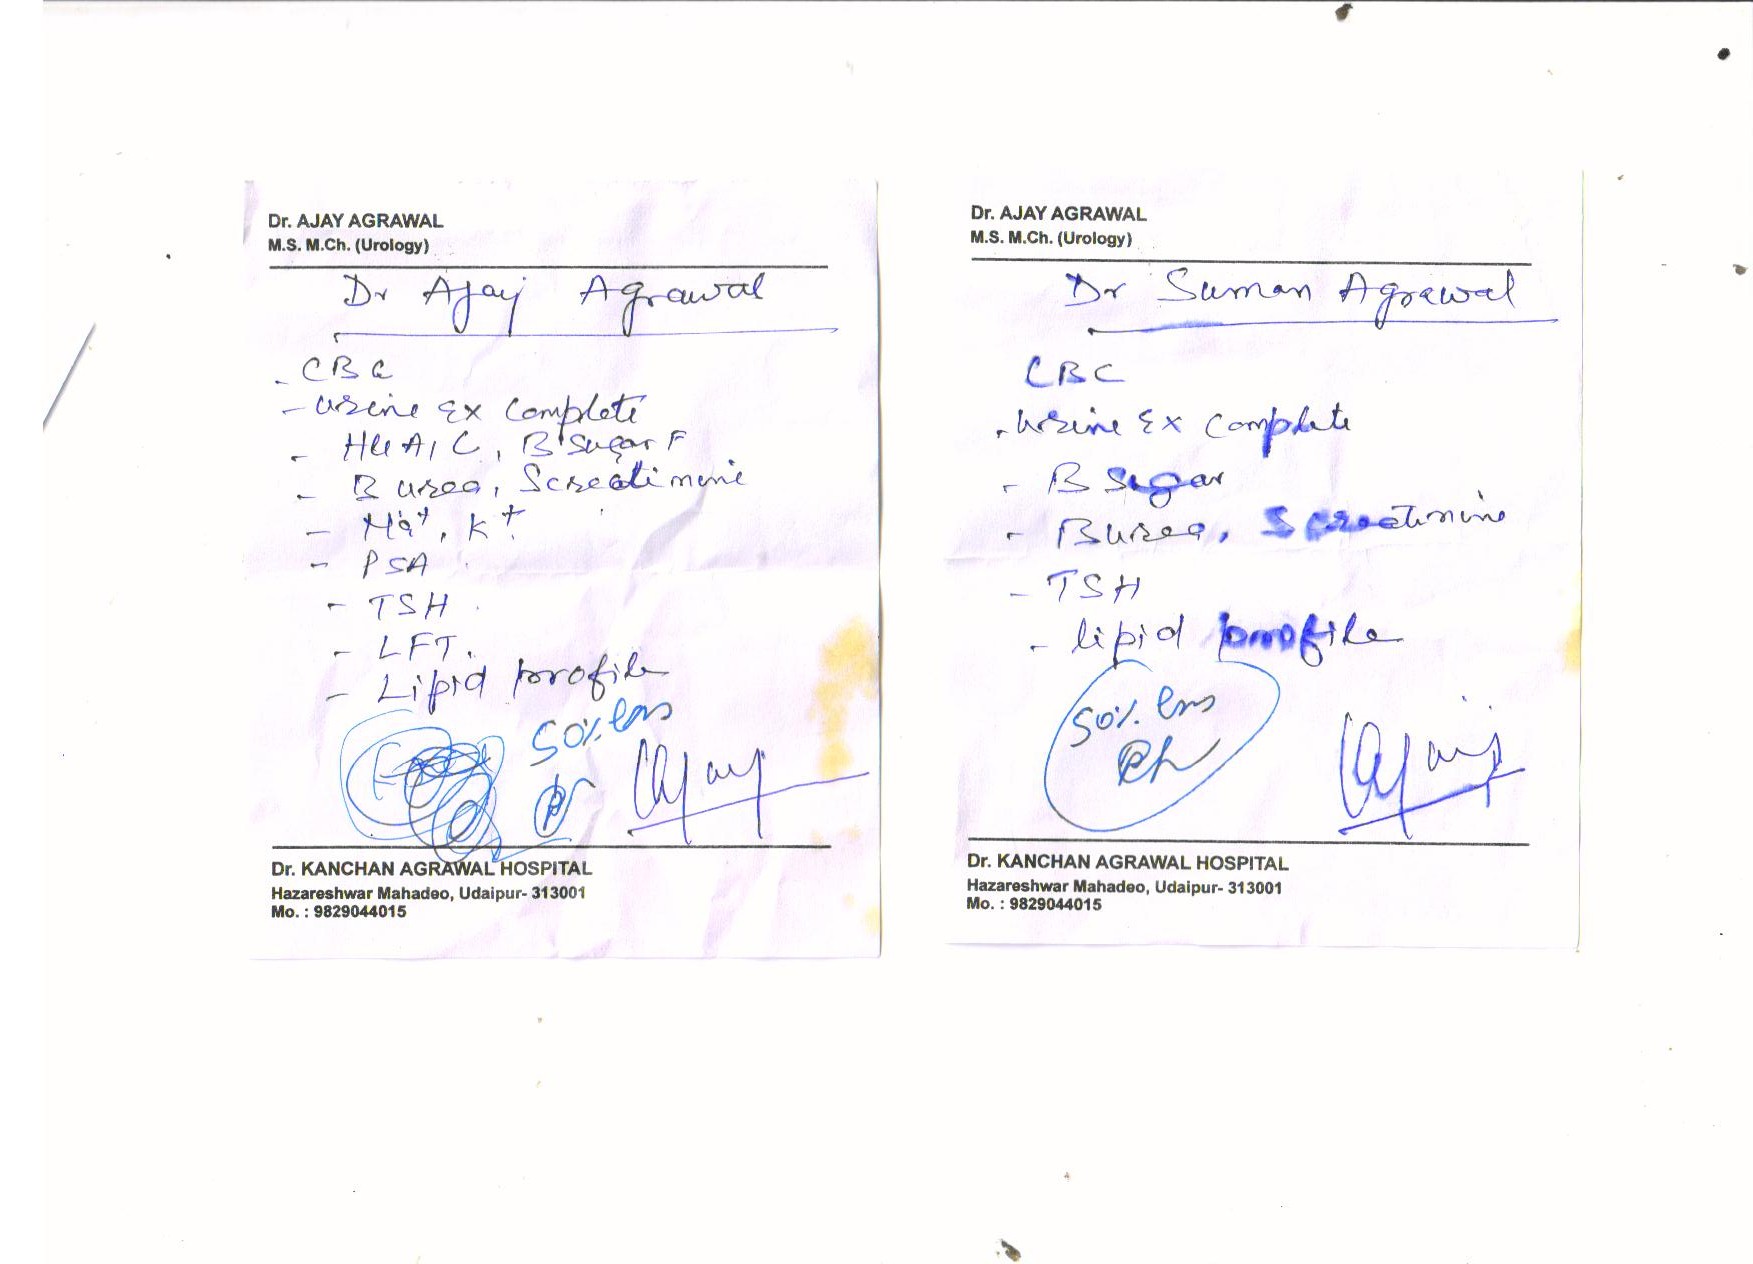 Dr. AJAY AGRAWAL
M.S. M.Ch. (Urology)
Dr Ajay Agrawal
- CBC
- Urine Ex Complete
- HbA1C, B Sugar F
- B urea, S creatinine
- Na+, K+
- PSA
- TSH
- LFT.
- Lipid profile
50% less
Ajay
Dr. KANCHAN AGRAWAL HOSPITAL
Hazareshwar Mahadeo, Udaipur- 313001
Mo. : 9829044015
Dr. AJAY AGRAWAL
M.S. M.Ch. (Urology)
Dr Suman Agrawal
CBC
- Urine Ex Complete
- B Sugar
- B urea, S creatinine
- TSH
- lipid profile
50% less
Ajay
Dr. KANCHAN AGRAWAL HOSPITAL
Hazareshwar Mahadeo, Udaipur- 313001
Mo. : 9829044015